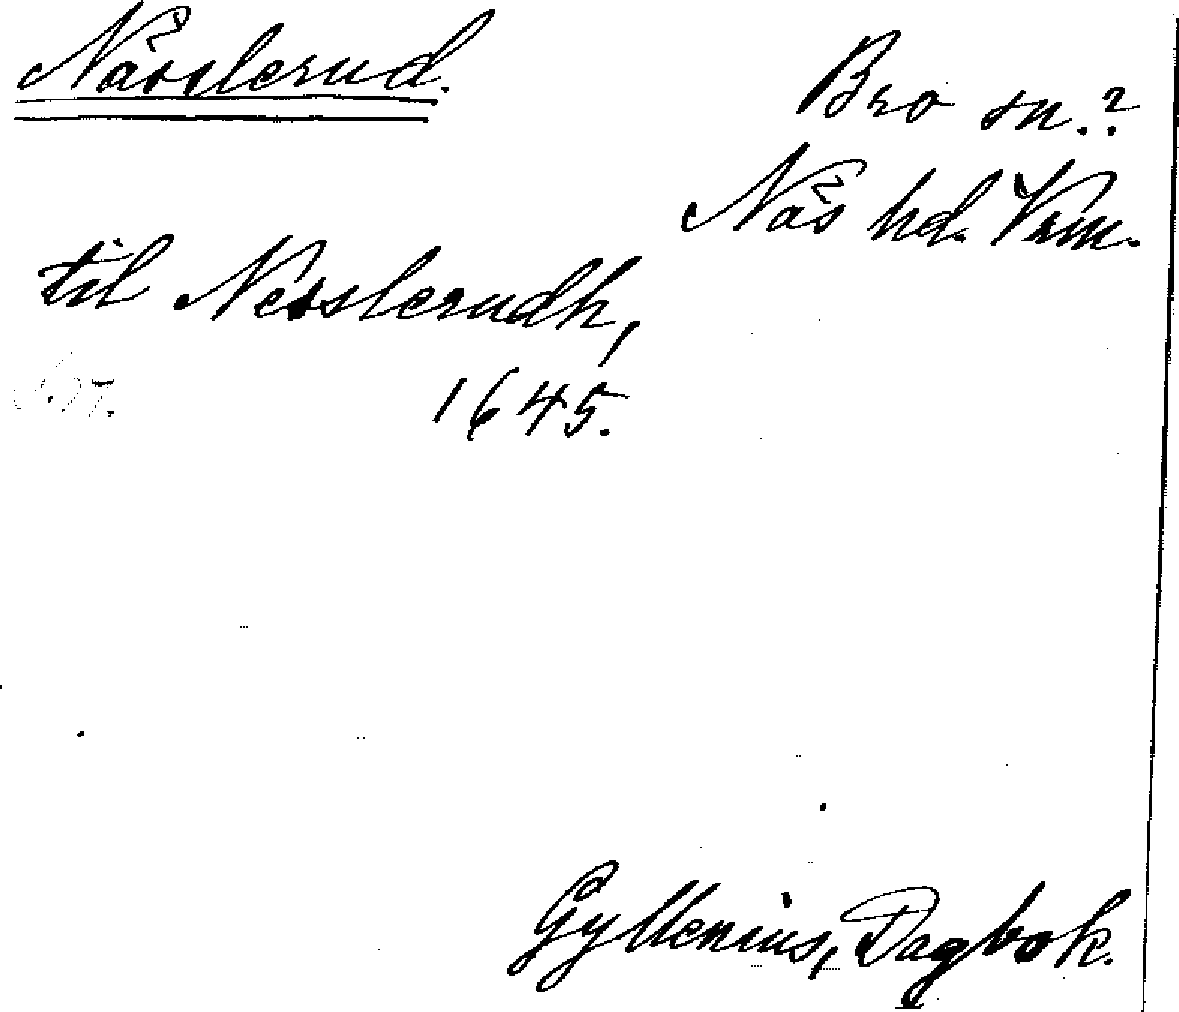 Nässlerud.
Bro sn.?
Näs hd. Vrm.
til Nesslerudh,
1645.
Gyllenius, Dagbok.